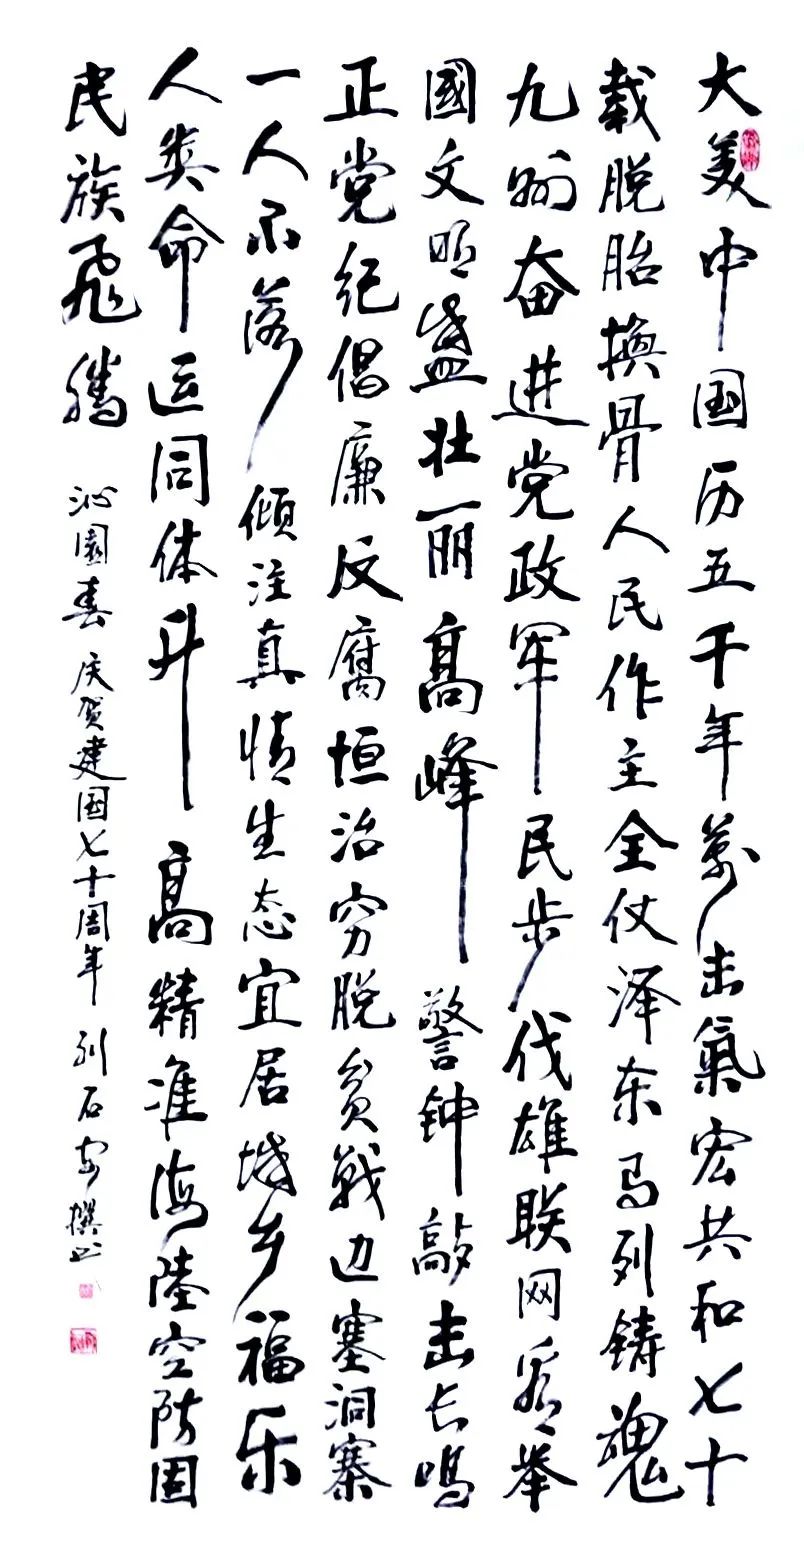 大美中国历五千年万击氣宏共和七十
载脱胎换骨人民作主全仗泽东马列铸魂
九州奋进党政军民步伐雄联网番举
國文明盛壮丽高峰警钟敲击长鸣
正党纪倡廉反腐恒治穷脱贫戰边塞洞寨
一人不落倾注真情生态宜居城乡福乐
人类命运同体升高精准海陸空防固
民族飛騰
沁園春庆贺建国七十周年
石安撰书